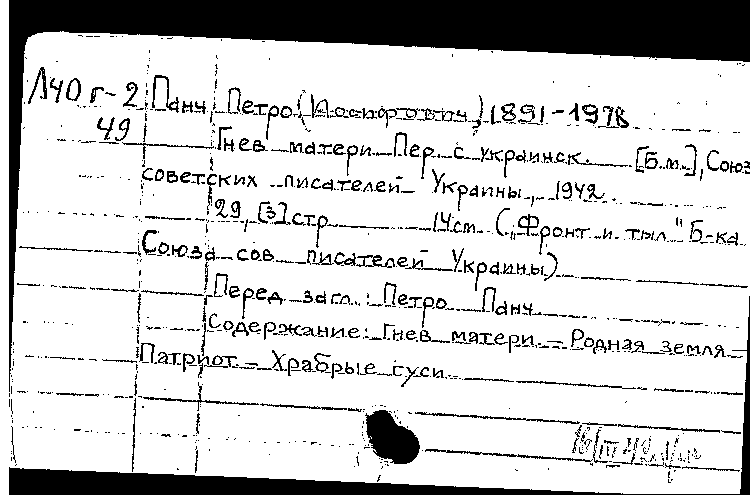 Л40 г-2 Панч, Петро (Иосифович) 1891-1978
49
Гнев матери. Пер. с украинск. [Б.м.], Союз
советских писателей Украины, 1942.
29, [3] стр 14 см. („Фронт и тыл" Б-ка
Союза сов. писателей Украины)
Перед загл.: Петро Панч
Содержание: Гнев матери. – Родная земля –
Патриот. – Храбрые гуси.